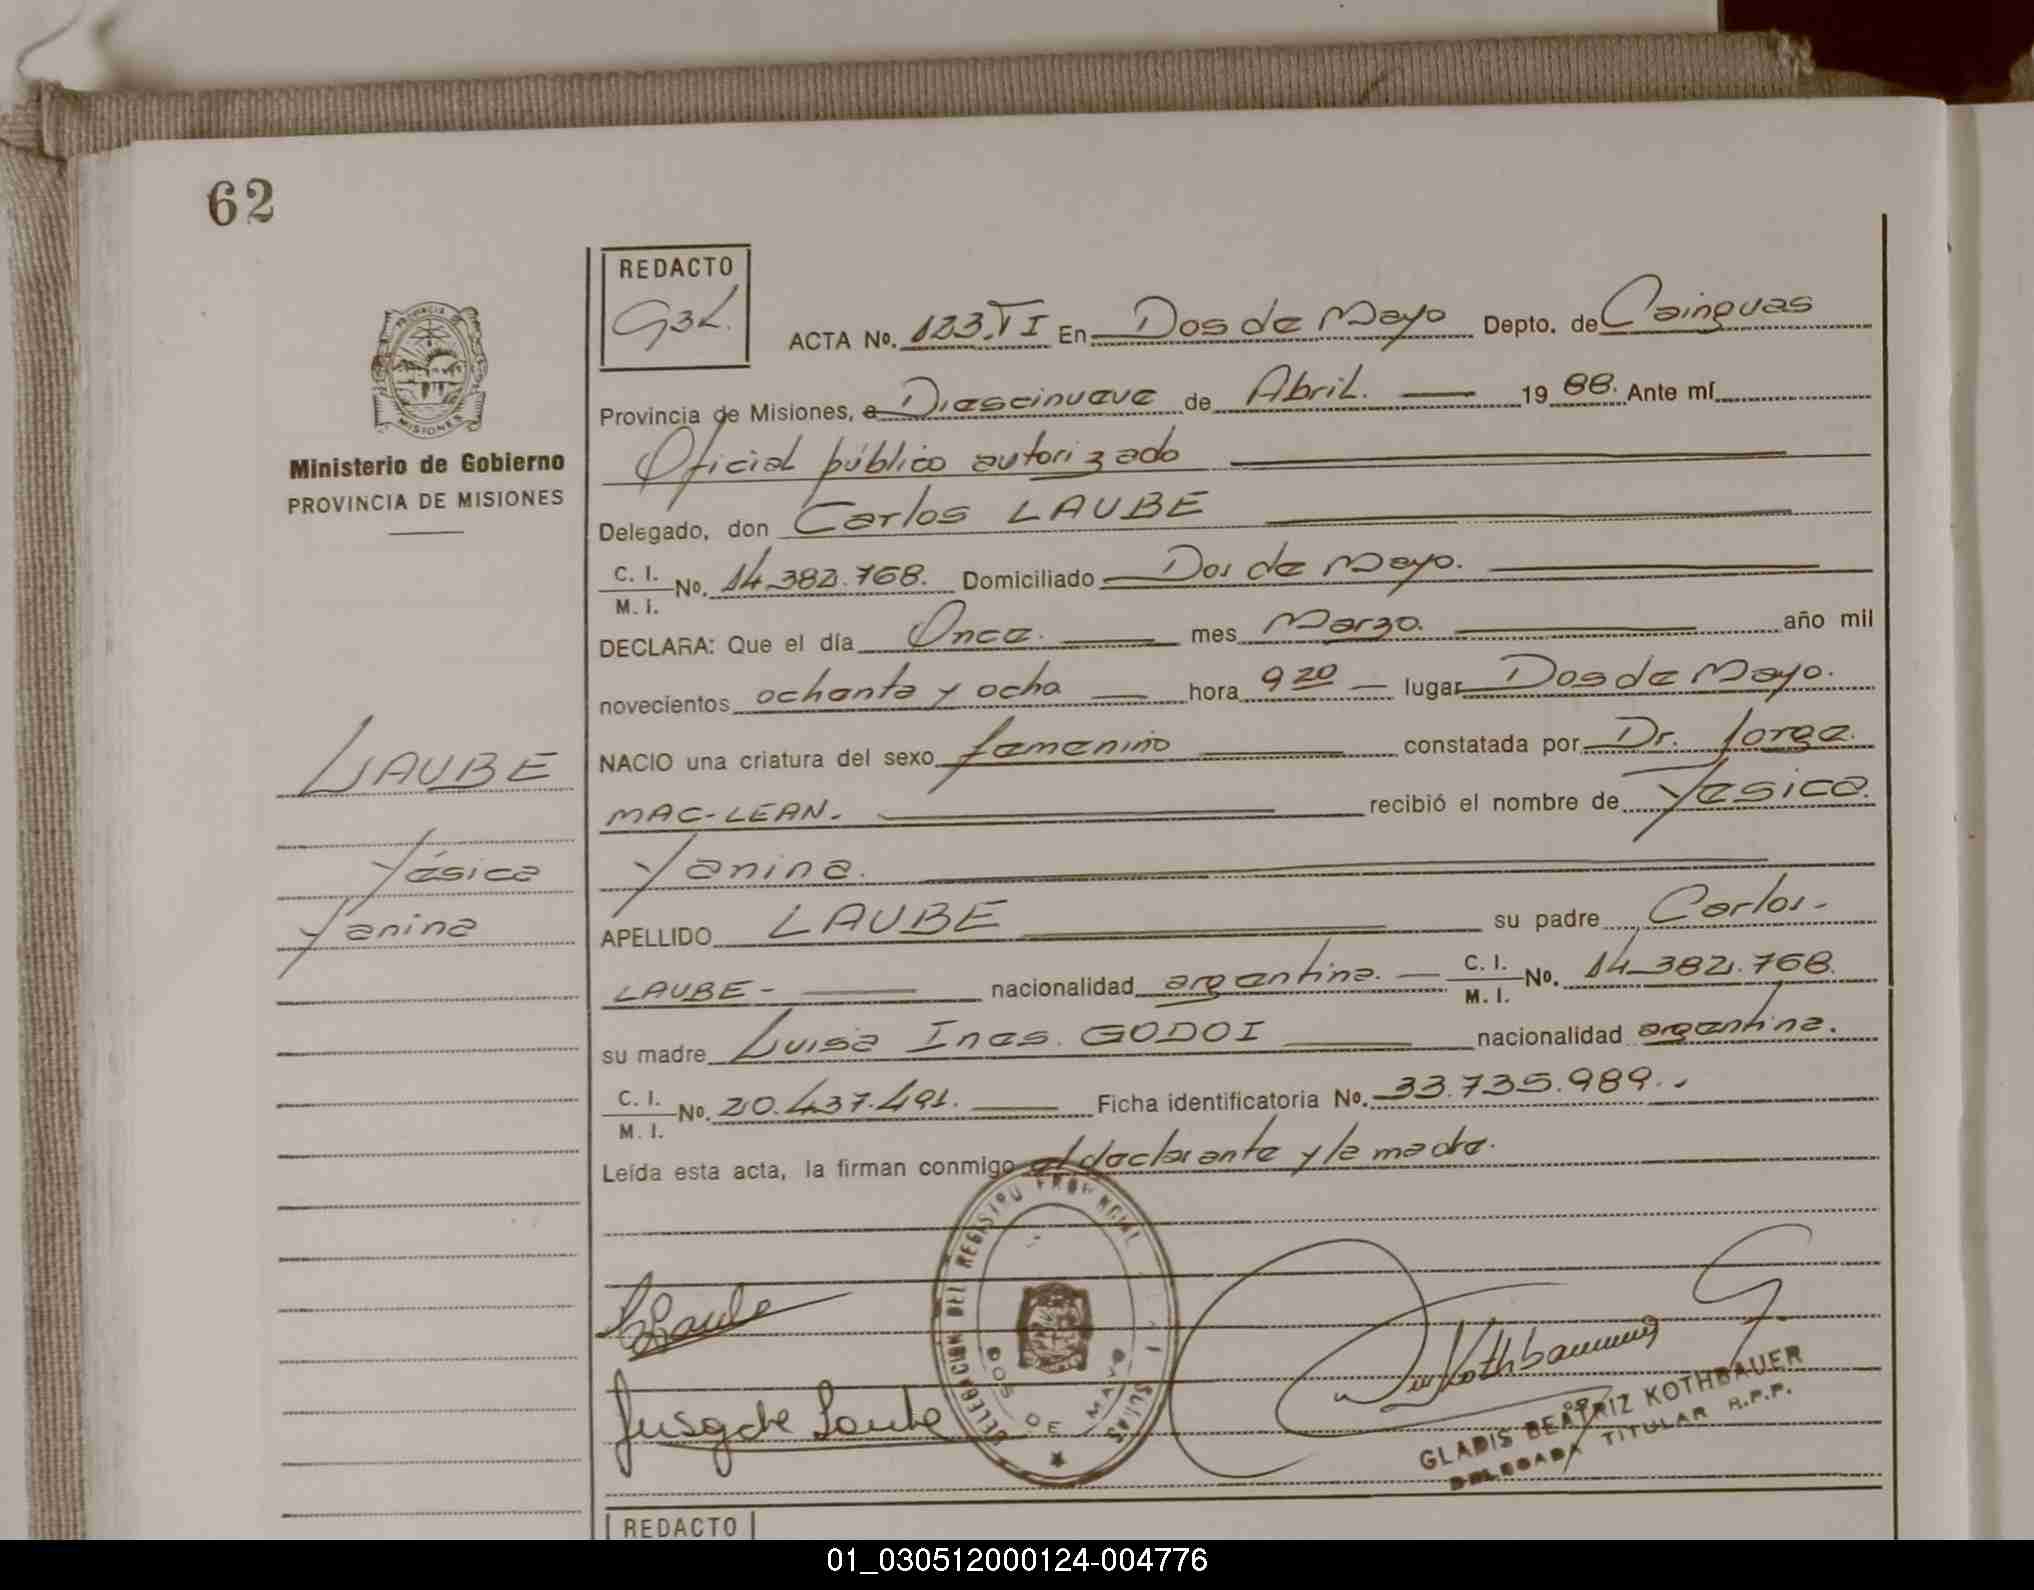 62
REDACTO
G3L.
PROVINCIA
MISIONES
Ministerio de Gobierno
PROVINCIA DE MISIONES
ACTA No. 123.TI En Dos de Mayo Depto. de Cainguas
Provincia de Misiones, a Diescinueve de Abril. — 1988. Ante mí
Oficial público autorizado
Delegado, don Carlos LAUBE
C. I. / M. I. No. 14.382.768. Domiciliado Dos de Mayo.
DECLARA: Que el día Once. — mes Marzo. — año mil
novecientos ochenta y ocho — hora 9 20 — lugar Dos de Mayo.
NACIO una criatura del sexo femenino — constatada por Dr. Jorge.
MAC-LEAN. — recibió el nombre de Yesica.
Yanina.
APELLIDO LAUBE — su padre Carlos-
LAUBE- — nacionalidad argentina. — C. I. / M. I. No. 14.382.768.
su madre Luisa Ines. GODOI — nacionalidad argentina.
C. I. / M. I. No. 20.437.491. — Ficha identificatoria No. 33.735.989.-
Leída esta acta, la firman conmigo el declarante y la madre.
LAUBE
Yésica
Yanina
DELEGACION DEL REGISTRO PROVINCIAL
DOS DE MAYO
Kothbauer
GLADIS BEATRIZ KOTHBAUER
DELEGADA TITULAR R.P.P.
REDACTO
01_030512000124-004776